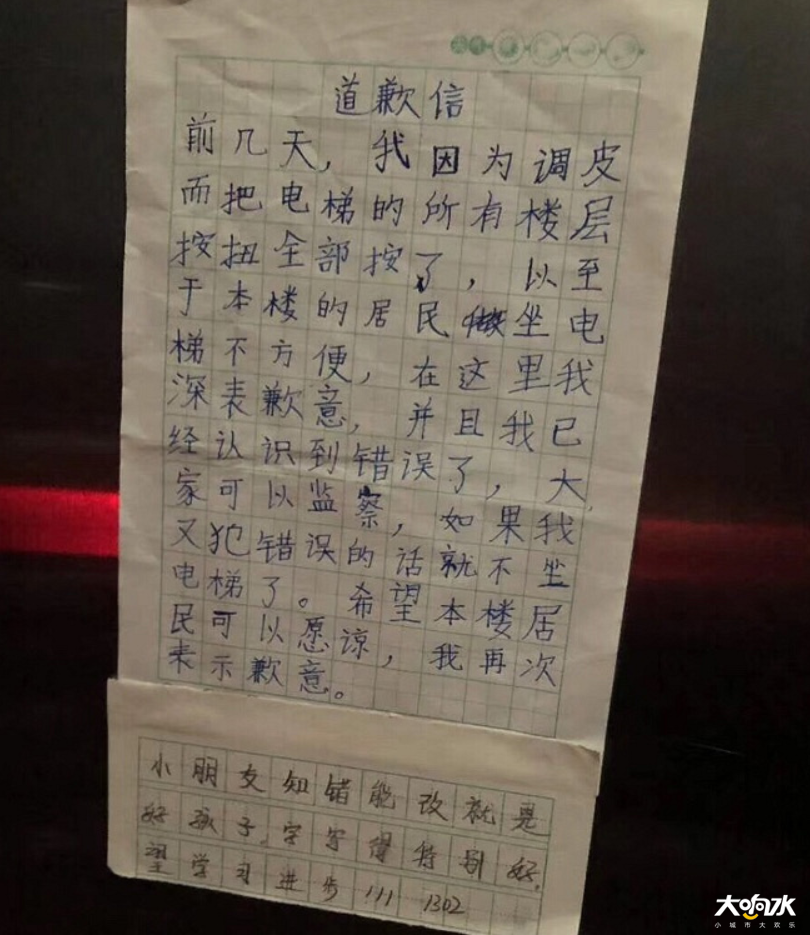 道歉信
前几天，我因为调皮
而把电梯的所有楼层
按扭全部按了，以至
于本楼的居民坐电
梯不方便，在这里我
深表歉意，并且我已
经认识到错误了，大
家可以监察，如果我
又犯错误的话就不坐
电梯了。希望本楼居
民可以愿谅，我再次
表示歉意。
小朋友知错能改就是
好孩子。字写得特别好，
望学习进步!!! 1302
大响水
小城市大欢乐